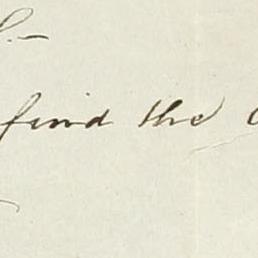 find the